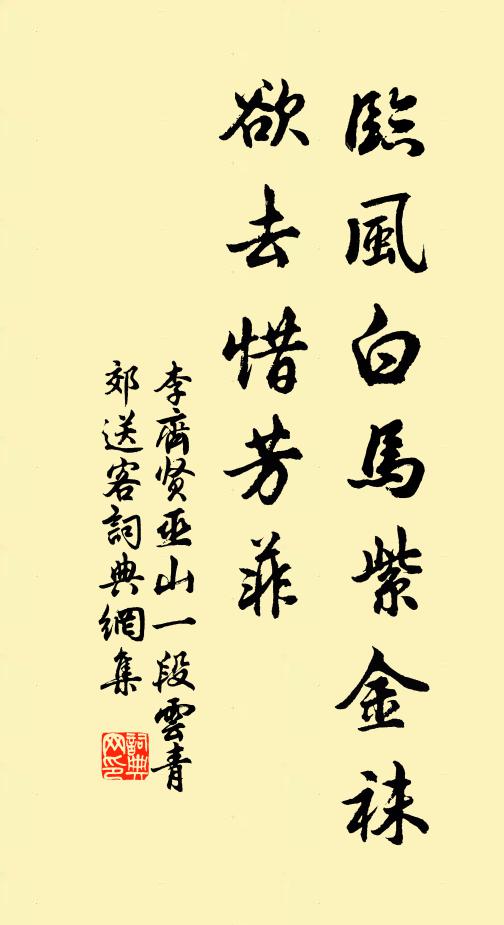 臨風白馬紫金袜
欲去惜芳菲
李齊賢巫山一段雲青
郊送客詞典網集
詞典
网印